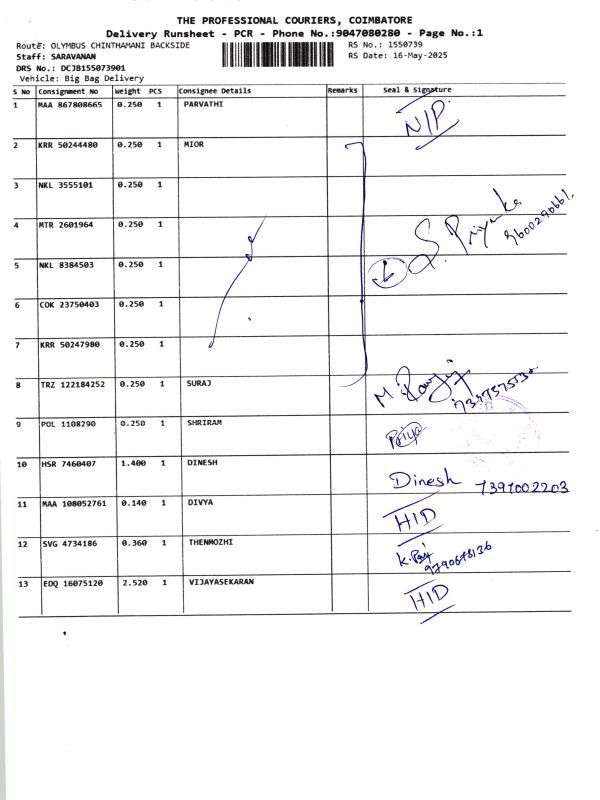 THE PROFESSIONAL COURIERS, COIMBATORE
Delivery Runsheet - PCR - Phone No.:9047080280 - Page No.:1
Route: OLYMBUS CHINTHAMANI BACKSIDE RS No.: 1550739
Staff: SARAVANAN RS Date: 16-May-2025
DRS No.: DCJB155073901
Vehicle: Big Bag Delivery
S No Consignment No Weight PCS Consignee Details Remarks Seal & Signature
1 MAA 867808665 0.250 1 PARVATHI N/P.
2 KRR 50244480 0.250 1 MIOR
3 NKL 3555101 0.250 1
4 MTR 2601964 0.250 1 S. Priyanka
9600290661.
5 NKL 8384503 0.250 1 6
6 COK 23750403 0.250 1
7 KRR 50247980 0.250 1
8 TRZ 122184252 0.250 1 SURAJ M.
9 POL 1108290 0.250 1 SHRIRAM Priya
10 HSR 7460407 1.400 1 DINESH Dinesh 7397002203
11 MAA 108052761 0.140 1 DIVYA HID
12 SVG 4734186 0.360 1 THENMOZHI K.
9790678136
13 EDQ 16075120 2.520 1 VIJAYASEKARAN HID